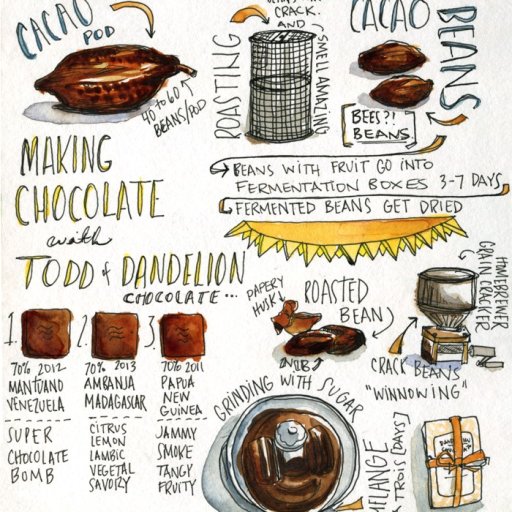 CACAO
POD
40 TO 60
BEANS/POD
ROASTING
CRACK.
AND
SMELL AMAZING
CACAO
BEANS
[BEES?!
BEANS.]
MAKING
CHOCOLATE
with
TODD & DANDELION
CHOCOLATE...
BEANS WITH FRUIT GO INTO
FERMENTATION BOXES 3-7 DAYS
FERMENTED BEANS GET DRIED
1.
70% 2012
MANTUANO
VENEZUELA
SUPER
CHOCOLATE
BOMB
2.
70% 2013
AMBANJA
MADAGASCAR
CITRUS
LEMON
LAMBIC
VEGETAL
SAVORY
3.
70% 2011
PAPUA
NEW
GUINEA
JAMMY
SMOKE
TANGY
FRUITY
PAPERY
HUSK
ROASTED
BEAN
NIB
HOMEBREWER
GRAIN CRACKER
CRACK BEANS
"WINNOWING"
GRINDING WITH SUGAR
MELANGE
TROIS [DAYS]